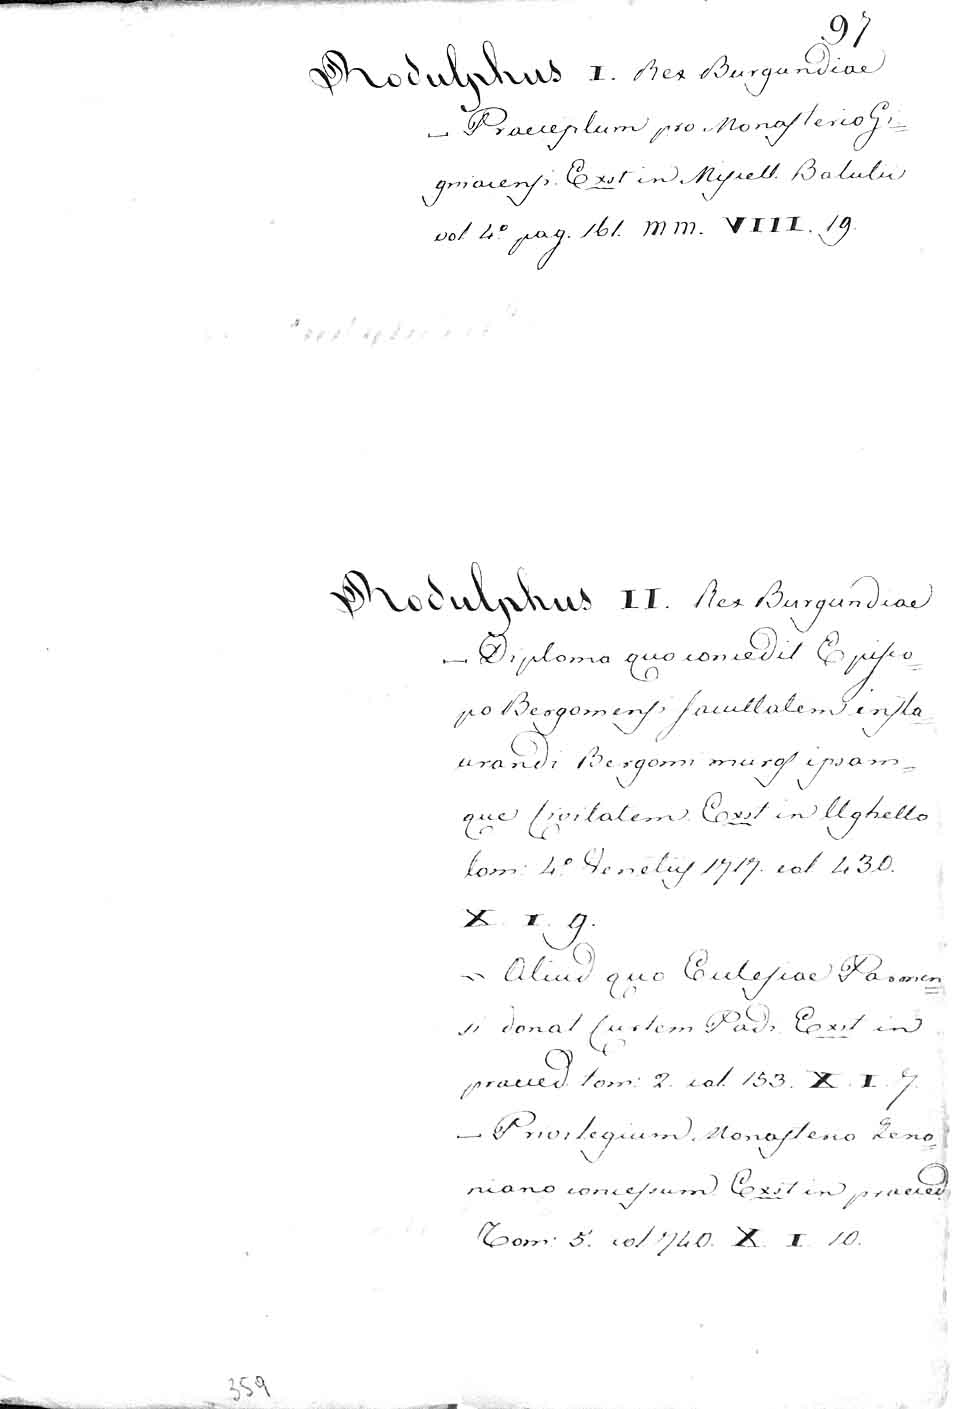 97
Rodulphus I. Rex Burgundiae
— Praeceptum pro Monasterio Gi=
gniacensi. Exst in Miscell. Balutii
vol 4.° pag. 161. mm. VIII. 19.
Rodulphus II. Rex Burgundiae
— Diploma quo concedit Episco=
po Bergomensi facultatem insta=
urandi Bergomi muros ipsam=
que Civitatem. Exst in Ughello
tom: 4.° Venetiis 1717. col 430.
X. I. 9.
— Aliud quo Eclesiae Parmen=
si donat Curtem Padi. Exst in
praeced. tom: 2. col. 153. X. I. 7.
— Privilegium Monasterio Zeno=
niano concessum. Exst in praeced.
Tom: 5. col 740. X. I. 10.
359